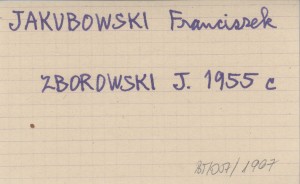 JAKUBOWSKI Franciszek
ZBOROWSKI J. 1955 c
/1907